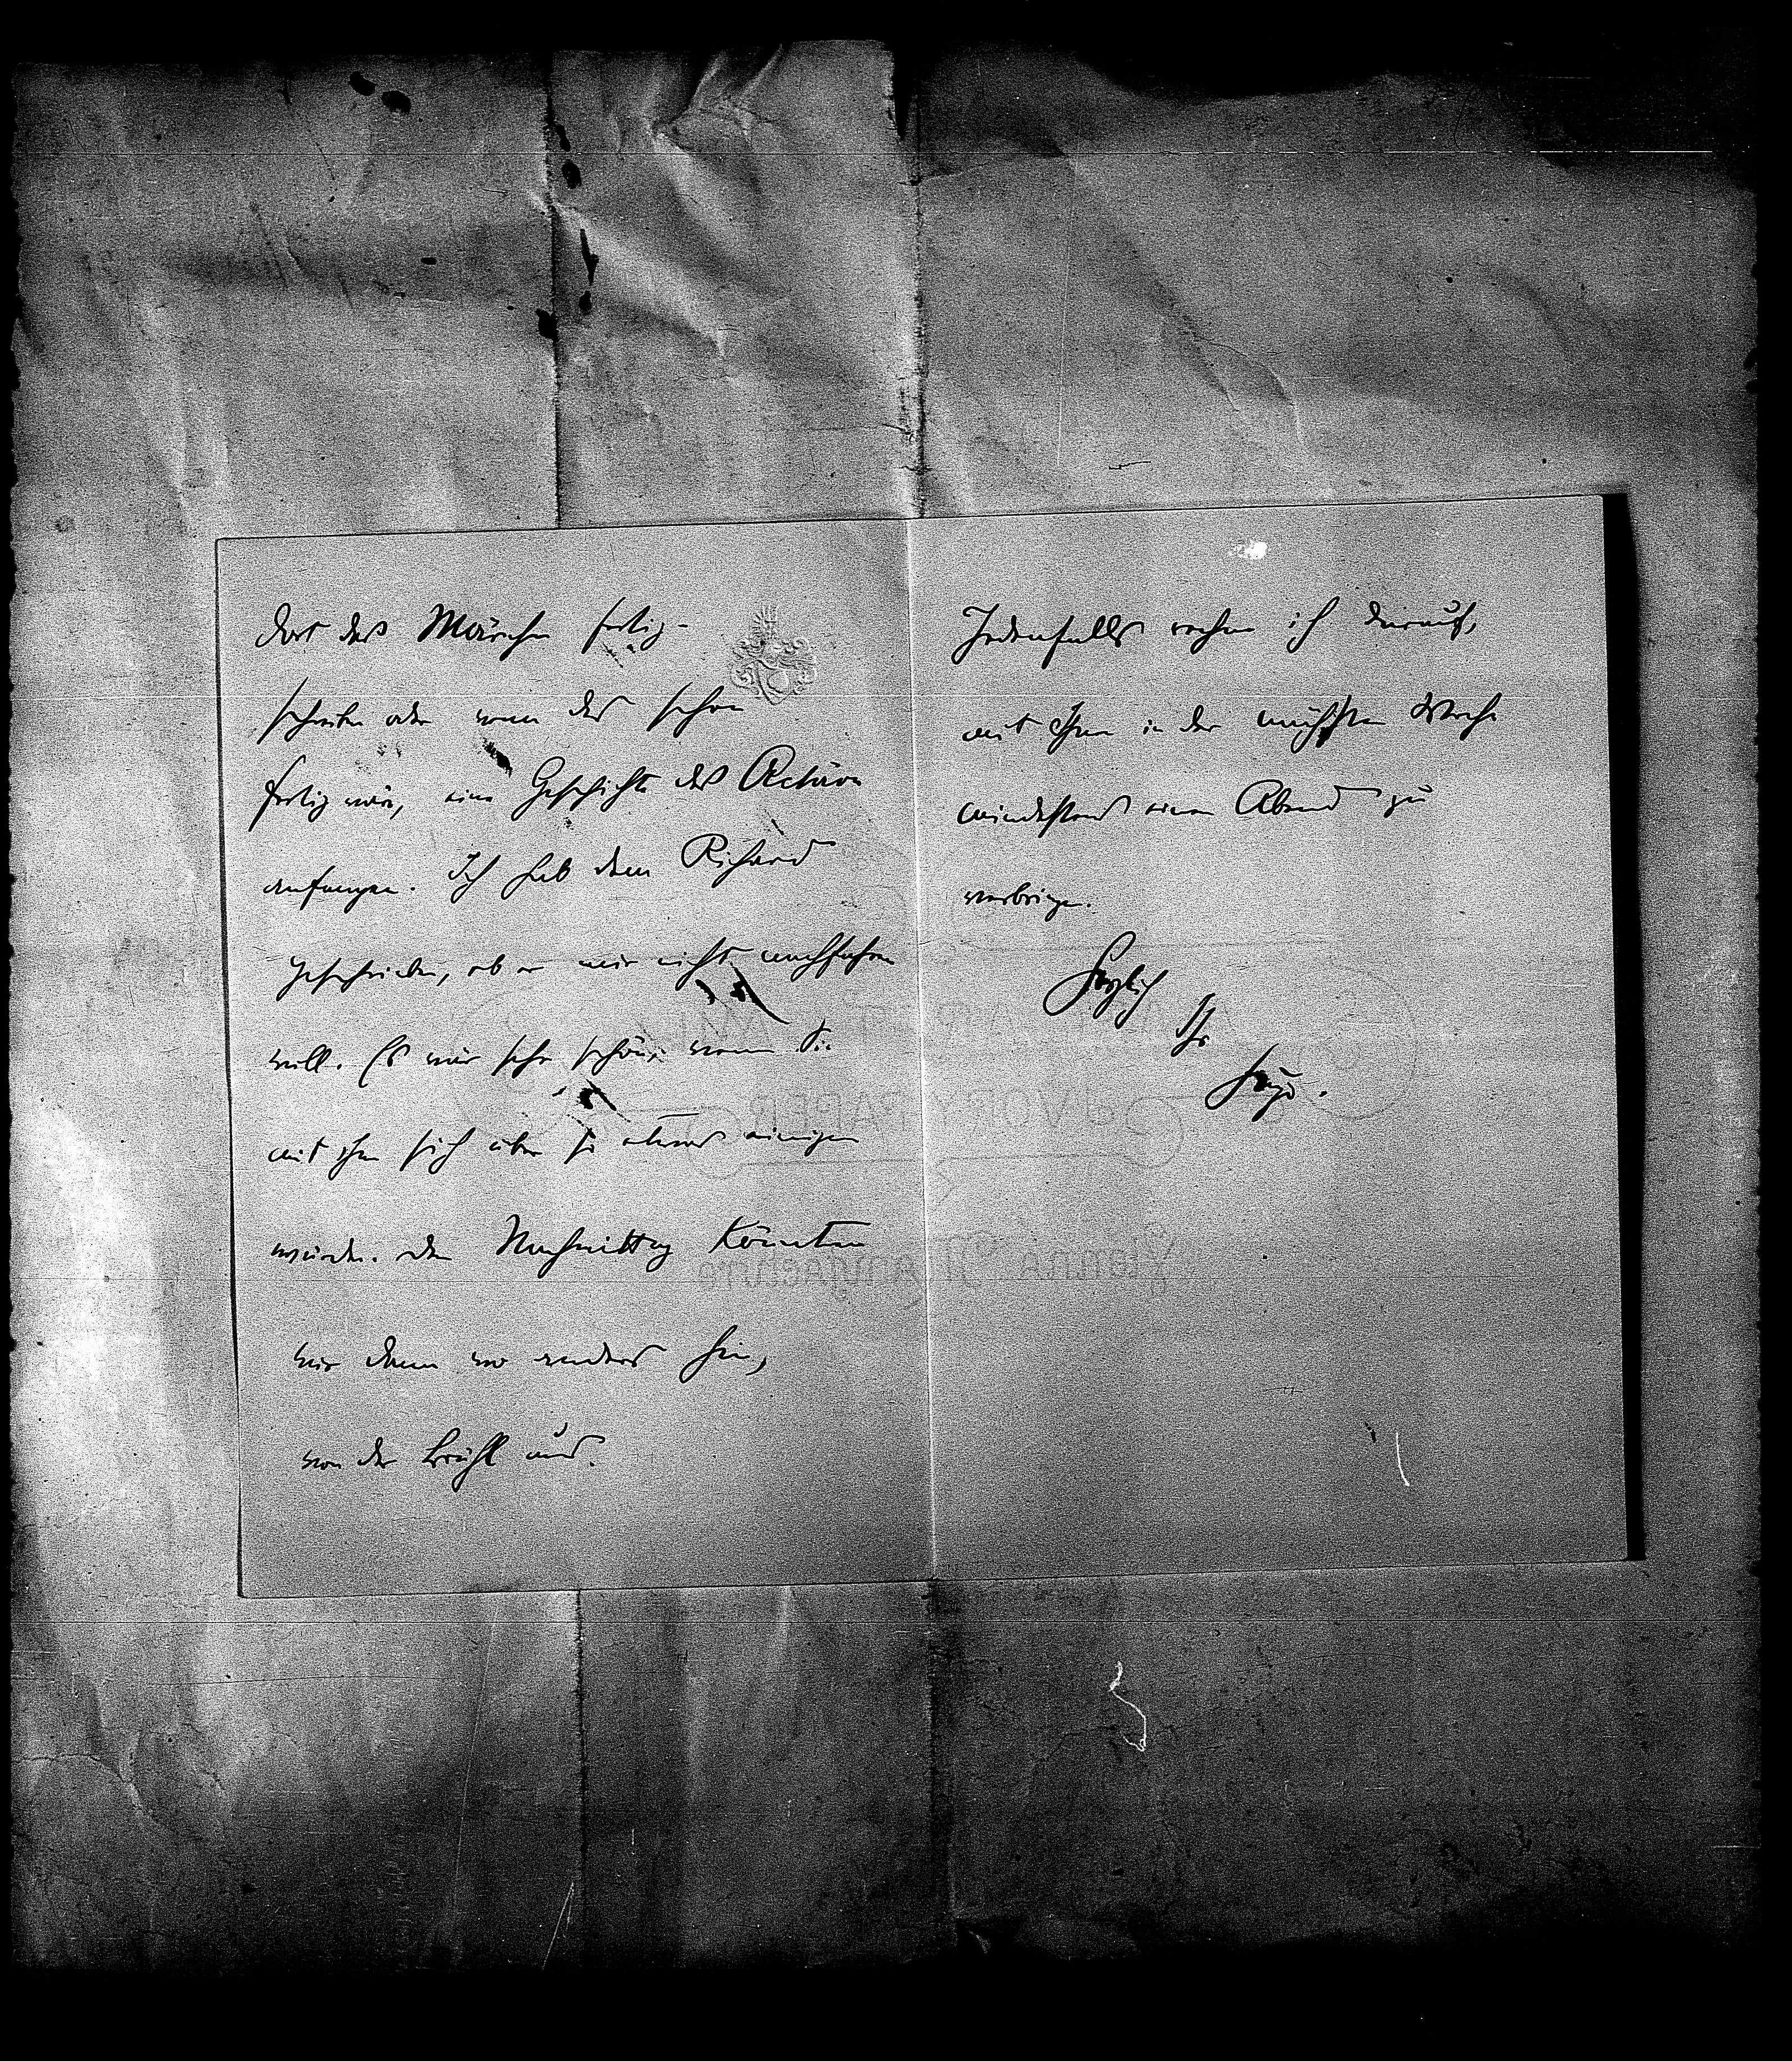 dort das Märchen fertig-
schreibe oder wenn das schon
fertig wär, eine Geschichte des Actäon
anfangen. Ich hab dem Richard
geschrieben, ob er mir nicht nachfahren
will. Es wär sehr schön, wenn Sie
mit ihm sich über so etwas einigen
würden. Den Nachmittag könnten
wir dann wo anders hin,
von der Brühl aus.
Jedenfalls rechne ich darauf,
mit Ihnen in der nächsten Woche
mindestens einen Abend zu
verbringen.
Herzlich
Ihr
Hugo.